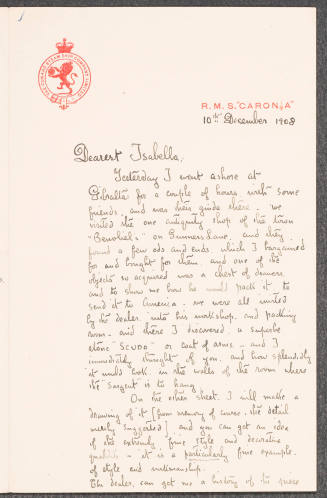 THE CUNARD STEAM SHIP COMPANY LIMITED
R.M.S. "CARONIA"
10th December 1908
Dearest Isabella,
Yesterday I went ashore at
Gibraltar for a couple of hours, with some
friends, and was their guide there. We
visited the one antiquity shop of the town
"Benoliel" - on Gunners Lane, and they
found a few ods and ends which I bargained
for and bought for them and one of the
objects so acquired was a chest of drawers
and to show us how he would pack it to
send it to America - we were all invited
by the dealer into his workshop, and packing
room - and there I discovered a superbe
stone "Scudo" or coat of arms - and I
immediately thought of you, and how splendidly
it would look on the walls of the room where
the "Sargent" is to hang
On the other sheet I will make a
drawing of it (from memory of course, the detail
merely suggested) and you can get an idea
of the extremely fine style and decorative
qualities - it is a particularly fine example
of style and workmanship.
The dealer can get me a history of the piece